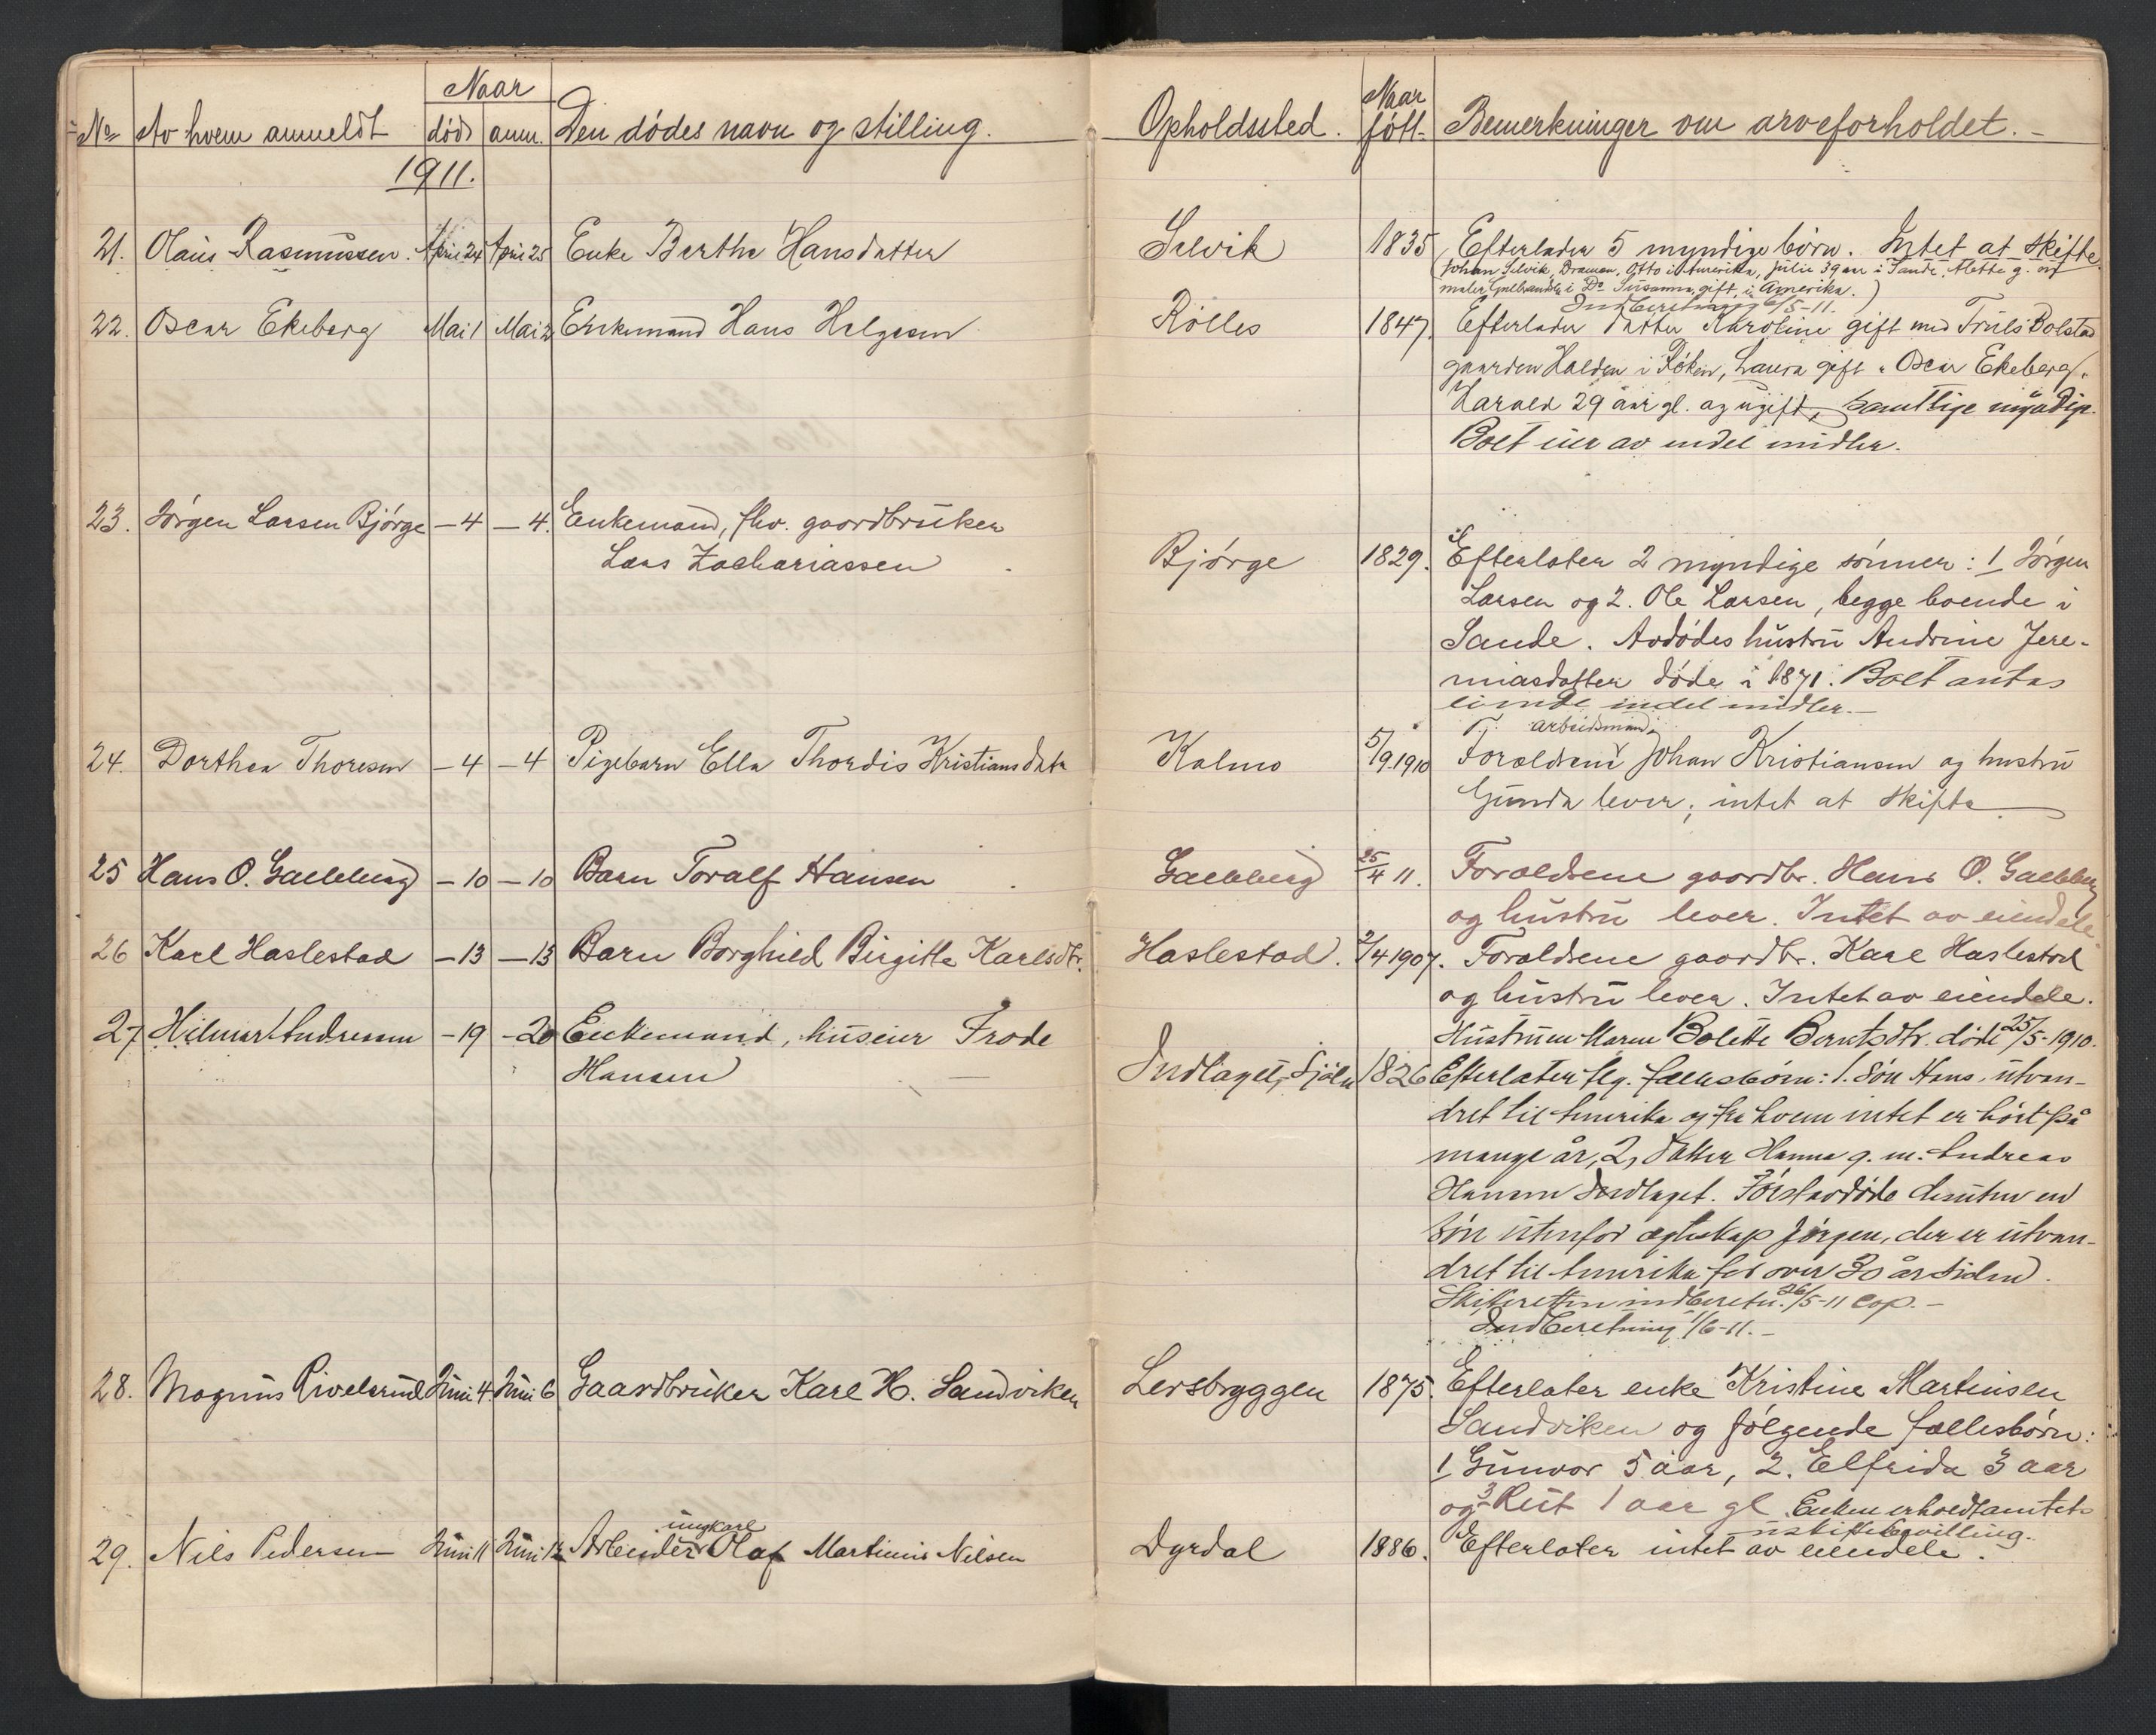 Naar
No Av hvem anmeldt død anm. Den dødes navn og stilling. Opholdssted. Naar født. Bemerkninger om arveforholdet. -
1911.
21. Olaus Rasmussen. April 24 April 25 Enke Berthe Hansdatter Selvik 1835 Efterlader 5 myndige børn. Intet at skifte
Johan Selvik, Dramen, Otto i Amerika, Julie 39 aar i Sande, Alette g. m.
maler Gulbrandsen i Do Susanna, gift, i Amerika.)
Indberetning 6/5-11.
22. Oscar Ekeberg Mai 1 Mai 2 Enkemand Hans Helgesen Rølles 1847. Efterlader datter Karoline gift med Truls Bolstad
gaarden Halden i Røken, Laura gift " Oscar Ekeberg,
Harald 29 aar gl. og ugift, samtlige myndige.
Boet eier av endel midler.
23. Jørgen Larsen Bjørge - 4 - 4. Enkemand, fhv. gaardbruker
Lars Zachariassen Bjørge 1829. Efterlater 2 myndige sønner: 1 Jørgen
Larsen og 2. Ole Larsen, begge boende i
Sande. Avdødes hustru Andrine Jere-
miasdatter døde i 1871. Boet antas
eiende endel midler. -
arbeidsmand
24. Dorthea Thoresen - 4 - 4 Pigebarn Ella Thordis Kristiansdatr Kolmo 5/9.1910 Forældrene Johan Kristiansen og hustru
Gunda lever; intet at skifte
25 Hans O. Galleberg - 10 - 10 Barn Toralf Hansen Galleberg 25/4 11. Forældrene gaardbr. Hans O. Galleberg
og hustru lever. Intet av eiendele.
26 Karl Haslestad - 13 - 13 Barn Borghild Birgitte Karlsdtr. Haslestad. 2/4 1907. Forældrene gaardbr. Karl Haslestad
og hustru lever. Intet av eiendele.
27 Hilmar Andresen - 19 - 20 Enkemand, huseier Frode Hustruen Maren Bolette Berntsdtr. døde 25/5-1910.
Hansen Indlaget, 1826 Efterlater flg. fællesbørn: 1. Søn Hans, utvan-
dret til Amerika og fra hvem intet er hørt på
mange år, 2, datter Hanna g. m. Andreas
Hansen Indlaget. Førstavdøde desuten en
søn utenfor egteskap Jørgen, der er utvan-
dret til Amerika for over 30 år siden.
Skifteretten indberetn. 26/5-11 Cop. -
Indberetning 1/6-11. -
28. Magnus Rivelsrud Juni 4. Juni 6 Gaardbruker Karl H. Sandviken Lersbryggen 1875. Efterlater enke Kristine Martinsen
Sandviken og følgende fællesbørn:
1 Gunvor 5 aar, 2. Elfrida 3 aar
og 3 Rut 1 aar gl. Enken erholdt amtets
uskiftebevilling.
ungkarl
29. Nils Pedersen Juni 11 Juni 12 Arbeider Olaf Martinius Nilsen Dyrdal 1886. Efterlater intet av eiendele.